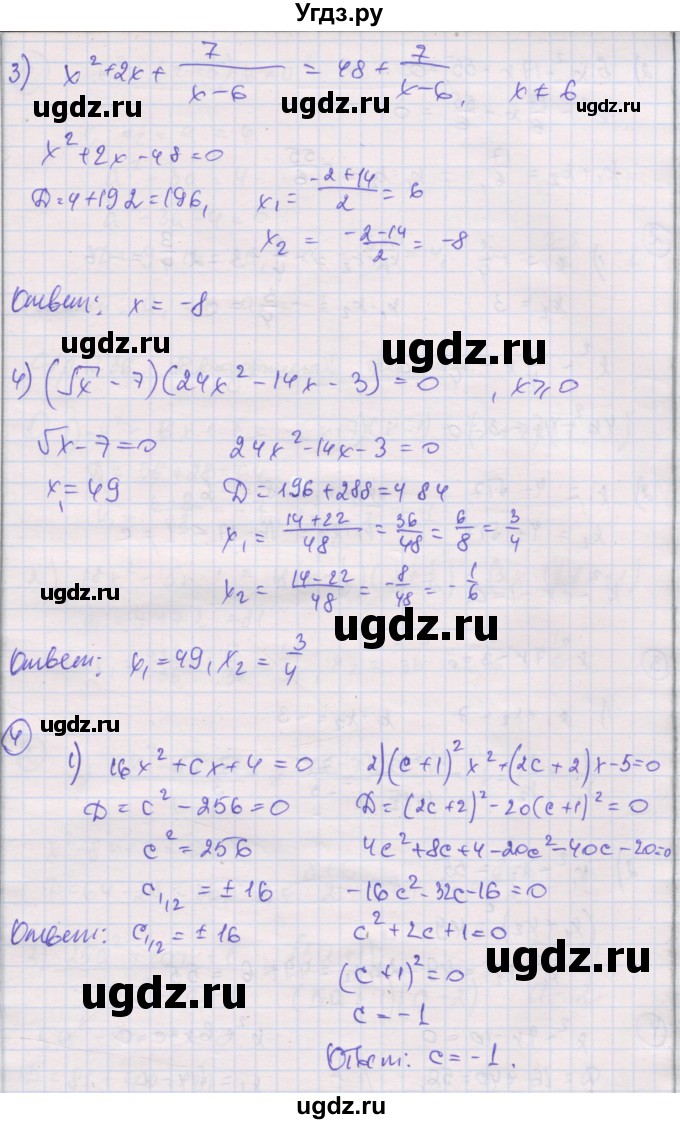 Угдз.ру
3) x² + 2x + 7/(x-6) = 48 + 7/(x-6), x ≠ 6
ugdz.ru ugdz.ru ugdz.ru
x² + 2x - 48 = 0
D = 4 + 192 = 196, x₁ = (-2+14)/2 = 6
ugdz.ru
x₂ = (-2-14)/2 = -8
Ответ: x = -8
ugdz.ru ugdz.ru
4) (√x - 7)(24x² - 14x - 3) = 0, x ⩾ 0
√x - 7 = 0 24x² - 14x - 3 = 0
x₁ = 49 D = 196 + 288 = 484
x₁ = (14+22)/48 = 36/48 = 6/8 = 3/4
x₂ = (14-22)/48 = -8/48 = -1/6
ugdz.ru ugdz.ru
Ответ: x₁ = 49, x₂ = 3/4
ugdz.ru
4
1) 16x² + cx + 4 = 0 2) (c+1)²x² + (2c+2)x - 5 = 0
D = c² - 256 = 0 D = (2c+2)² - 20(c+1)² = 0
c² = 256 4c² + 8c + 4 - 20c² - 40c - 20 = 0
c₁,₂ = ± 16 -16c² - 32c - 16 = 0
Ответ: c₁/₂ = ± 16 c² + 2c + 1 = 0
ugdz.ru
(c+1)² = 0
ugdz.ru
c = -1
Ответ: c = -1.
ugdz.ru